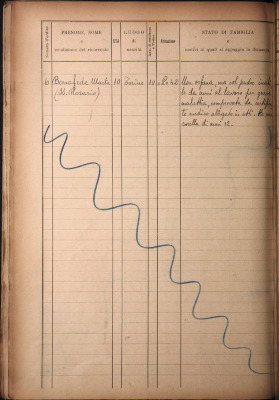 PRENOME, NOME
e
condizione del ricoverato
ETÀ
LUOGO
di
nascita
Religione
STATO DI FAMIGLIA
e
motivi ai quali si appoggia la domanda
6 Bonafede Maria 10 Torino 10
(SS. Rosario)
Non orfana, ma col padre inabi-
le da anni al lavoro per grave
malattia, comprovata da certifica-
to medico allegato in atti. Ha una
sorella di anni 12.